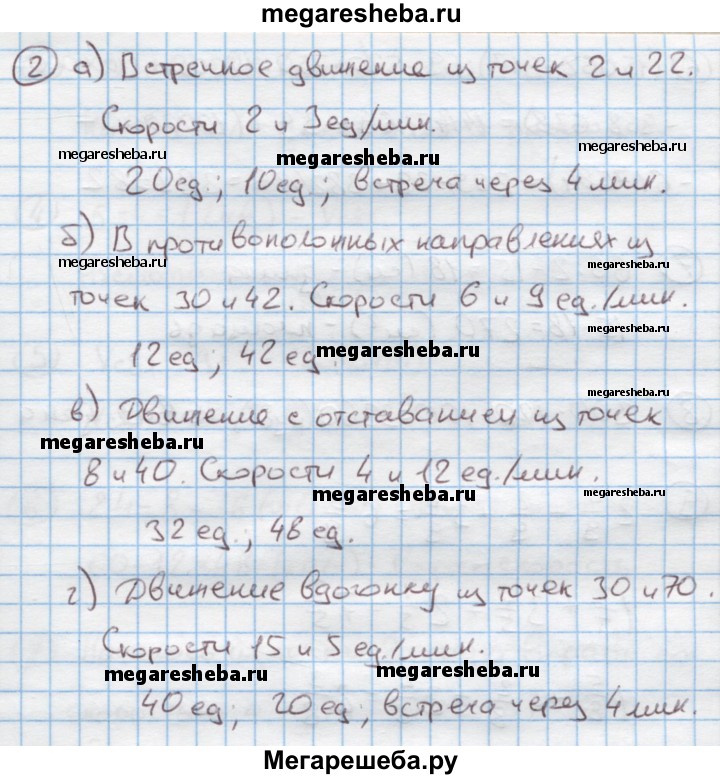 megaresheba.ru
2 а) Встречное движение из точек 2 и 22.
Скорости 2 и 3 ед/мин.
megaresheba.ru megaresheba.ru megaresheba.ru
20 ед.; 10 ед; встреча через 4 мин.
б) В противоположных направлениях из
megaresheba.ru megaresheba.ru
точек 30 и 42. Скорости 6 и 9 ед./мин.
megaresheba.ru
12 ед; 42 ед.
megaresheba.ru
megaresheba.ru
в) Движение с отставанием из точек
megaresheba.ru
8 и 40. Скорости 4 и 12 ед./мин.
megaresheba.ru megaresheba.ru
32 ед.; 48 ед.
г) Движение вдогонку из точек 30 и 70.
Скорости 15 и 5 ед./мин.
megaresheba.ru megaresheba.ru
40 ед; 20 ед; встреча через 4 мин.
Мегарешеба.ру